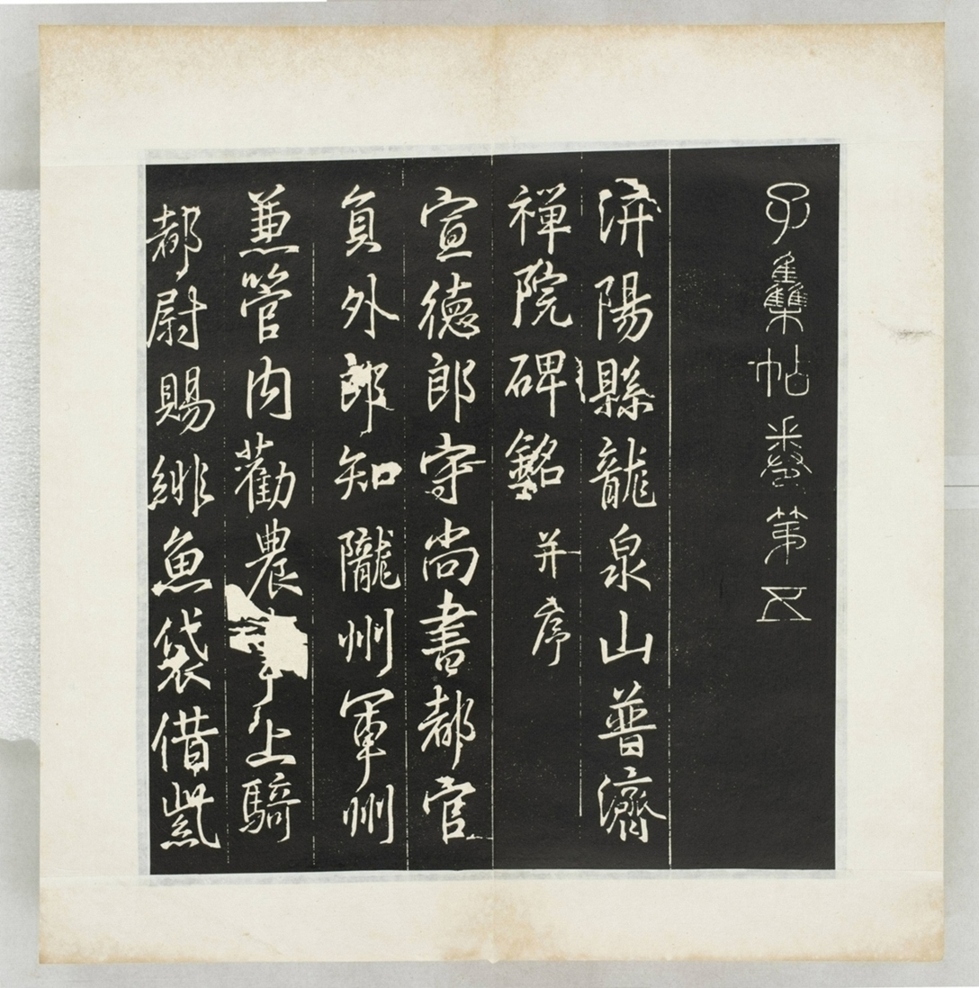 集帖卷第五
汧陽縣龍泉山普濟
禪院碑銘并序
宣德郎守尚書都官
員外郎知隴州軍州
兼管內勸農事上騎
都尉賜緋魚袋借紫